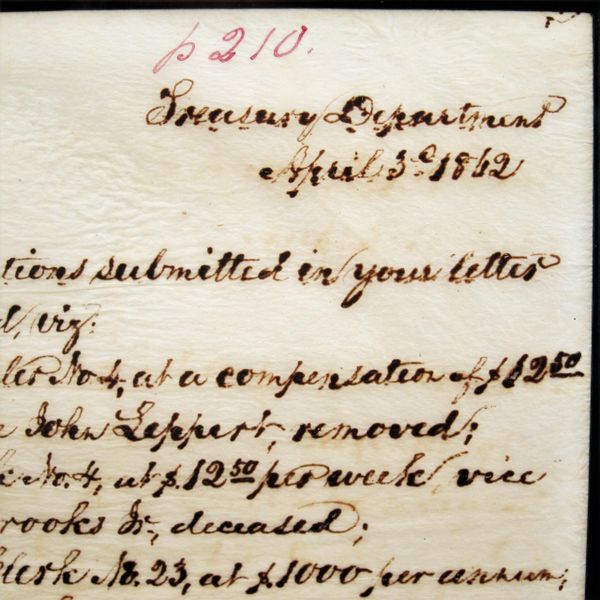 p 210.
Treasury Department
April 3d 1842
tions submitted in your letter
d, viz:
ler No 4, at a compensation of $12 50
e John Leppert, removed;
k No. 4, at $12 50 per week, vice
rooks Jr, deceased;
lerk No. 23, at $1000 per annum;